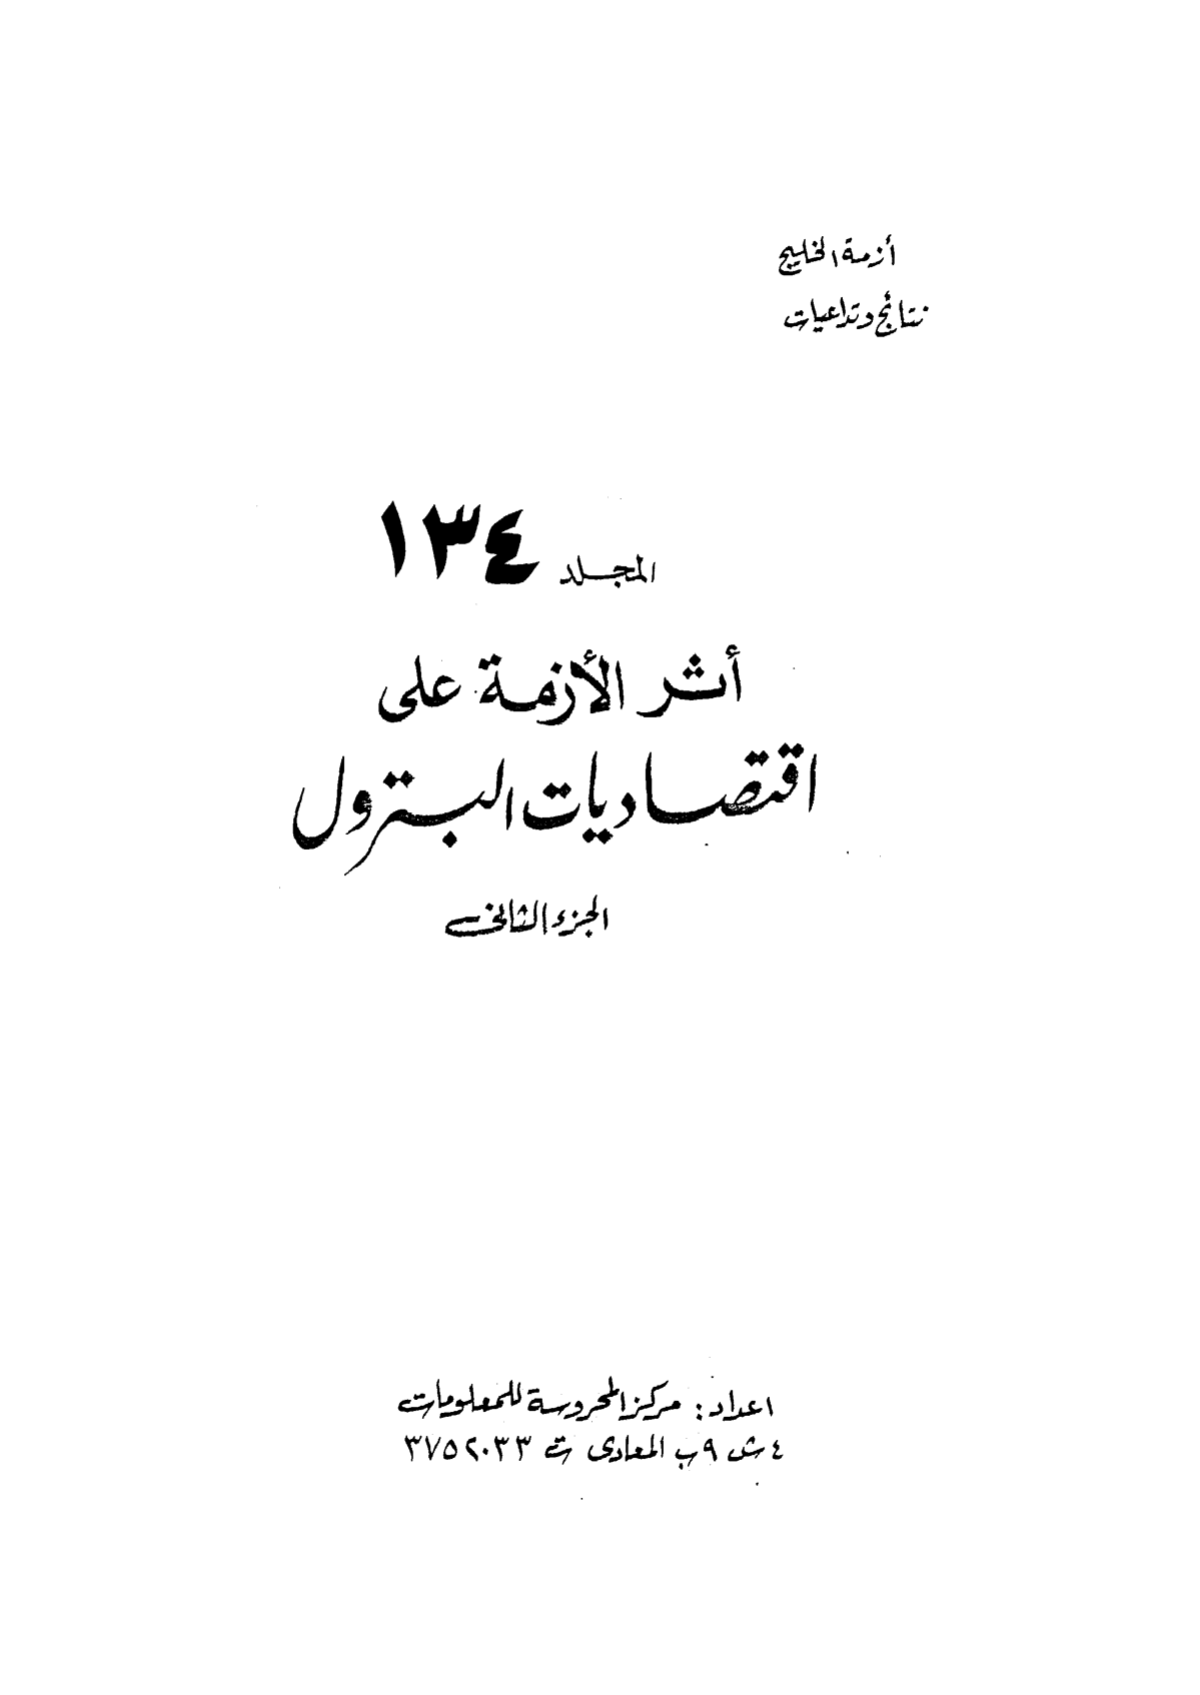 أزمة الخليج
نتائج وتداعيات
المجلد ١٣٤
أثر الأزمة على
اقتصاديات البترول
الجزء الثانى
اعداد: مركز المحروسة للمعلومات
٤ ش ٩ب المعادى ت ٣٧٥٢٠٣٣